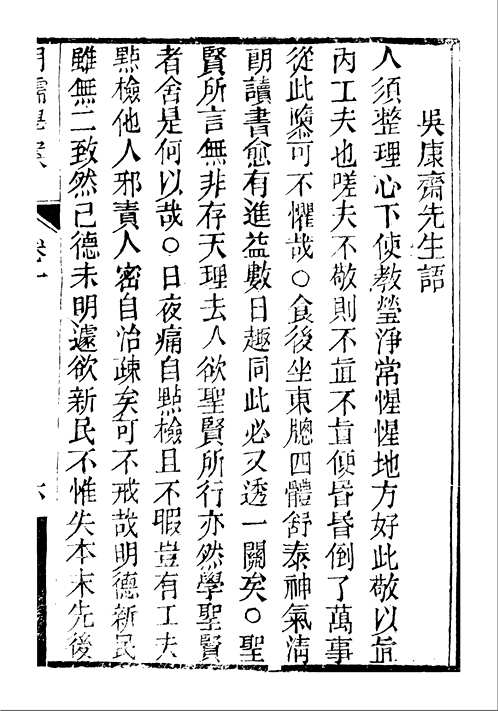 吳康齋先生語
人須整理心下使敎瑩淨常惺惺地方好此敬以直
內工夫也嗟夫不敬則不直不直便昏昏倒了萬事
從此隳可不懼哉○食後坐東牕四體舒泰神氣淸
朗讀書愈有進益數日趣同此必又透一關矣○聖
賢所言無非存天理去人欲聖賢所行亦然學聖賢
者舍是何以哉○日夜痛自點檢且不暇豈有工夫
點檢他人邪責人密自治疎矣可不戒哉明德新民
雖無二致然己德未明遽欲新民不惟失本末先後
明儒學案 卷一 六